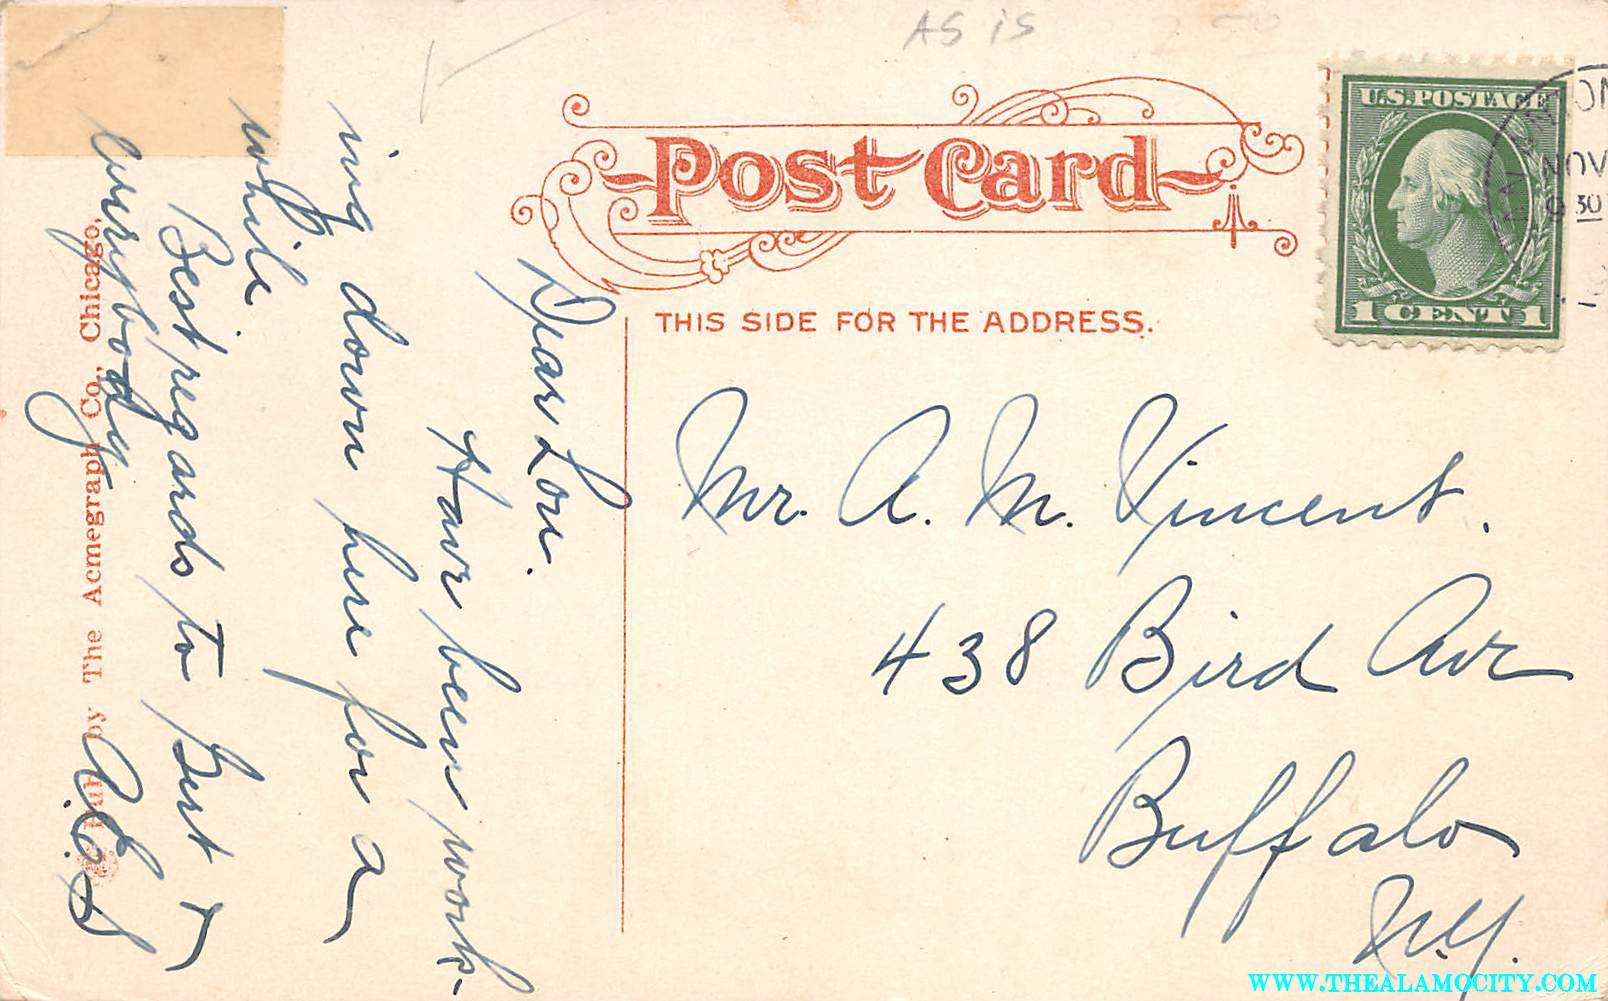 AS IS
2 50
Post Card
THIS SIDE FOR THE ADDRESS.
U.S. POSTAGE
1 CENT 1
NOV
9 30
Mr. A. M. Vincent.
438 Bird Ave
Buffalo
N.Y.
Dear Lou.
Have been work-
ing down here for a
while
Best regards to Bert &
everybody
by The Acmegraph Co., Chicago.
WWW.THEALAMOCITY.COM